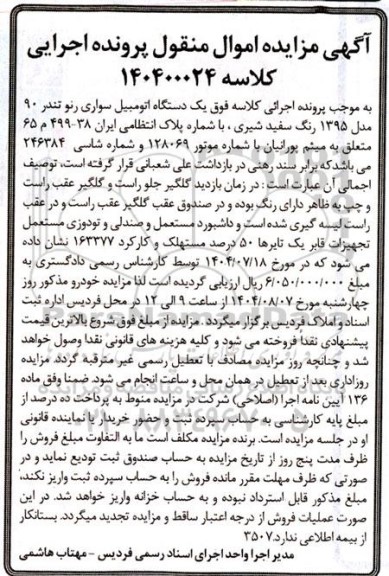 آگهی مزایده اموال منقول پرونده اجرایی
کلاسه ۱۴۰۴۰۰۰۲۴
به موجب پرونده اجرائی کلاسه فوق یک دستگاه اتومبیل سواری رنو تندر ۹۰
مدل ۱۳۹۵ رنگ سفید شیری ، با شماره پلاک انتظامی ایران ۳۸-۴۹۹ م ۶۵
متعلق به میثم پورانیان با شماره موتور ۱۲۸۰۶۹ و شماره شاسی ۲۴۶۳۸۴
می باشد که برابر سند رهنی در بازداشت علی شعبانی قرار گرفته است، توصیف
اجمالی آن عبارت است : در زمان بازدید گلگیر جلو راست و گلگیر عقب راست
و چپ به ظاهر دارای رنگ بوده و در صندوق عقب گلگیر عقب راست و در عقب
راست لیسه گیری شده است و داشبورد مستعمل و صندلی و تودوزی مستعمل
تجهیزات قابر یک تایرها ۵۰ درصد مستهلک و کارکرد ۱۶۳۳۷۷ نشان داده
می شود که در مورخ ۱۴۰۴/۰۷/۱۸ توسط کارشناس رسمی دادگستری به
مبلغ ۶/۰۵۰/۰۰۰/۰۰۰ ریال ارزیابی گردیده است لذا مزایده خودرو مذکور روز
چهارشنبه مورخ ۱۴۰۴/۰۸/۰۷ از ساعت ۹ الی ۱۲ در محل فردیس اداره ثبت
اسناد و املاک فردیس برگزار میگردد . مزایده از مبلغ فوق شروع بالاترین قیمت
پیشنهادی نقدا فروخته می شود و کلیه هزینه های قانونی نقدا وصول خواهد
شد و چنانچه روز مزایده مصادف با تعطیل رسمی غیر مترقبه گردد مزایده
روز اداری بعد از تعطیل در همان محل و ساعت انجام می شود. ضمنا وفق ماده
۱۳۶ آیین نامه اجرا (اصلاحی) شرکت در مزایده منوط به پرداخت ده درصد از
مبلغ پایه کارشناسی به حساب سپرده ثبت و حضور خریدار یا نماینده قانونی
او در جلسه مزایده است. برنده مزایده مکلف است ما به التفاوت مبلغ فروش را
ظرف مدت پنج روز از تاریخ مزایده به حساب صندوق ثبت تودیع نماید و در
صورتی که ظرف مهلت مقرر مانده فروش را به حساب سپرده ثبت واریز نکند،
مبلغ مذکور قابل استرداد نبوده و به حساب خزانه واریز خواهد شد. در این
صورت عملیات فروش از درجه اعتبار ساقط و مزایده تجدید میگردد. بستانکار
از بیمه اطلاعی ندارد.۳۵۰۷
مدیر اجرا واحد اجرای اسناد رسمی فردیس -مهتاب هاشمی